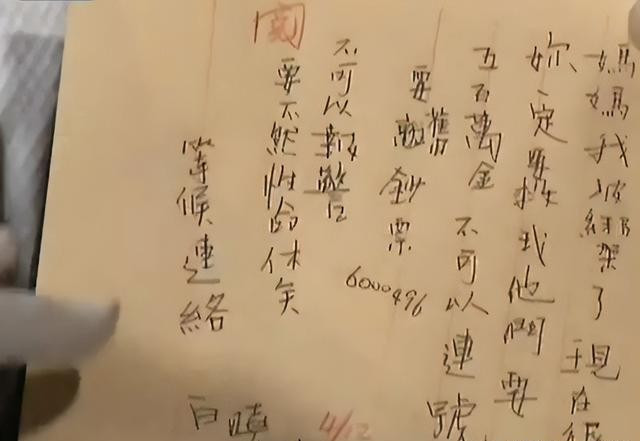 媽媽我被綁架了現在很
妳一定要救我他們要
五百萬金 不可以連號
要舊鈔票
6000496
不可以報警
要不然性命休矣
等候連絡
白曉